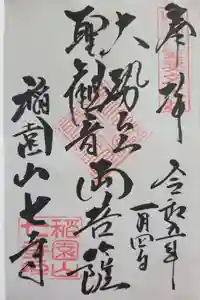 奉拝
令和五年
一月四日
大勢至
聖観音
両菩薩
稲園山七寺
稲園山
七寺